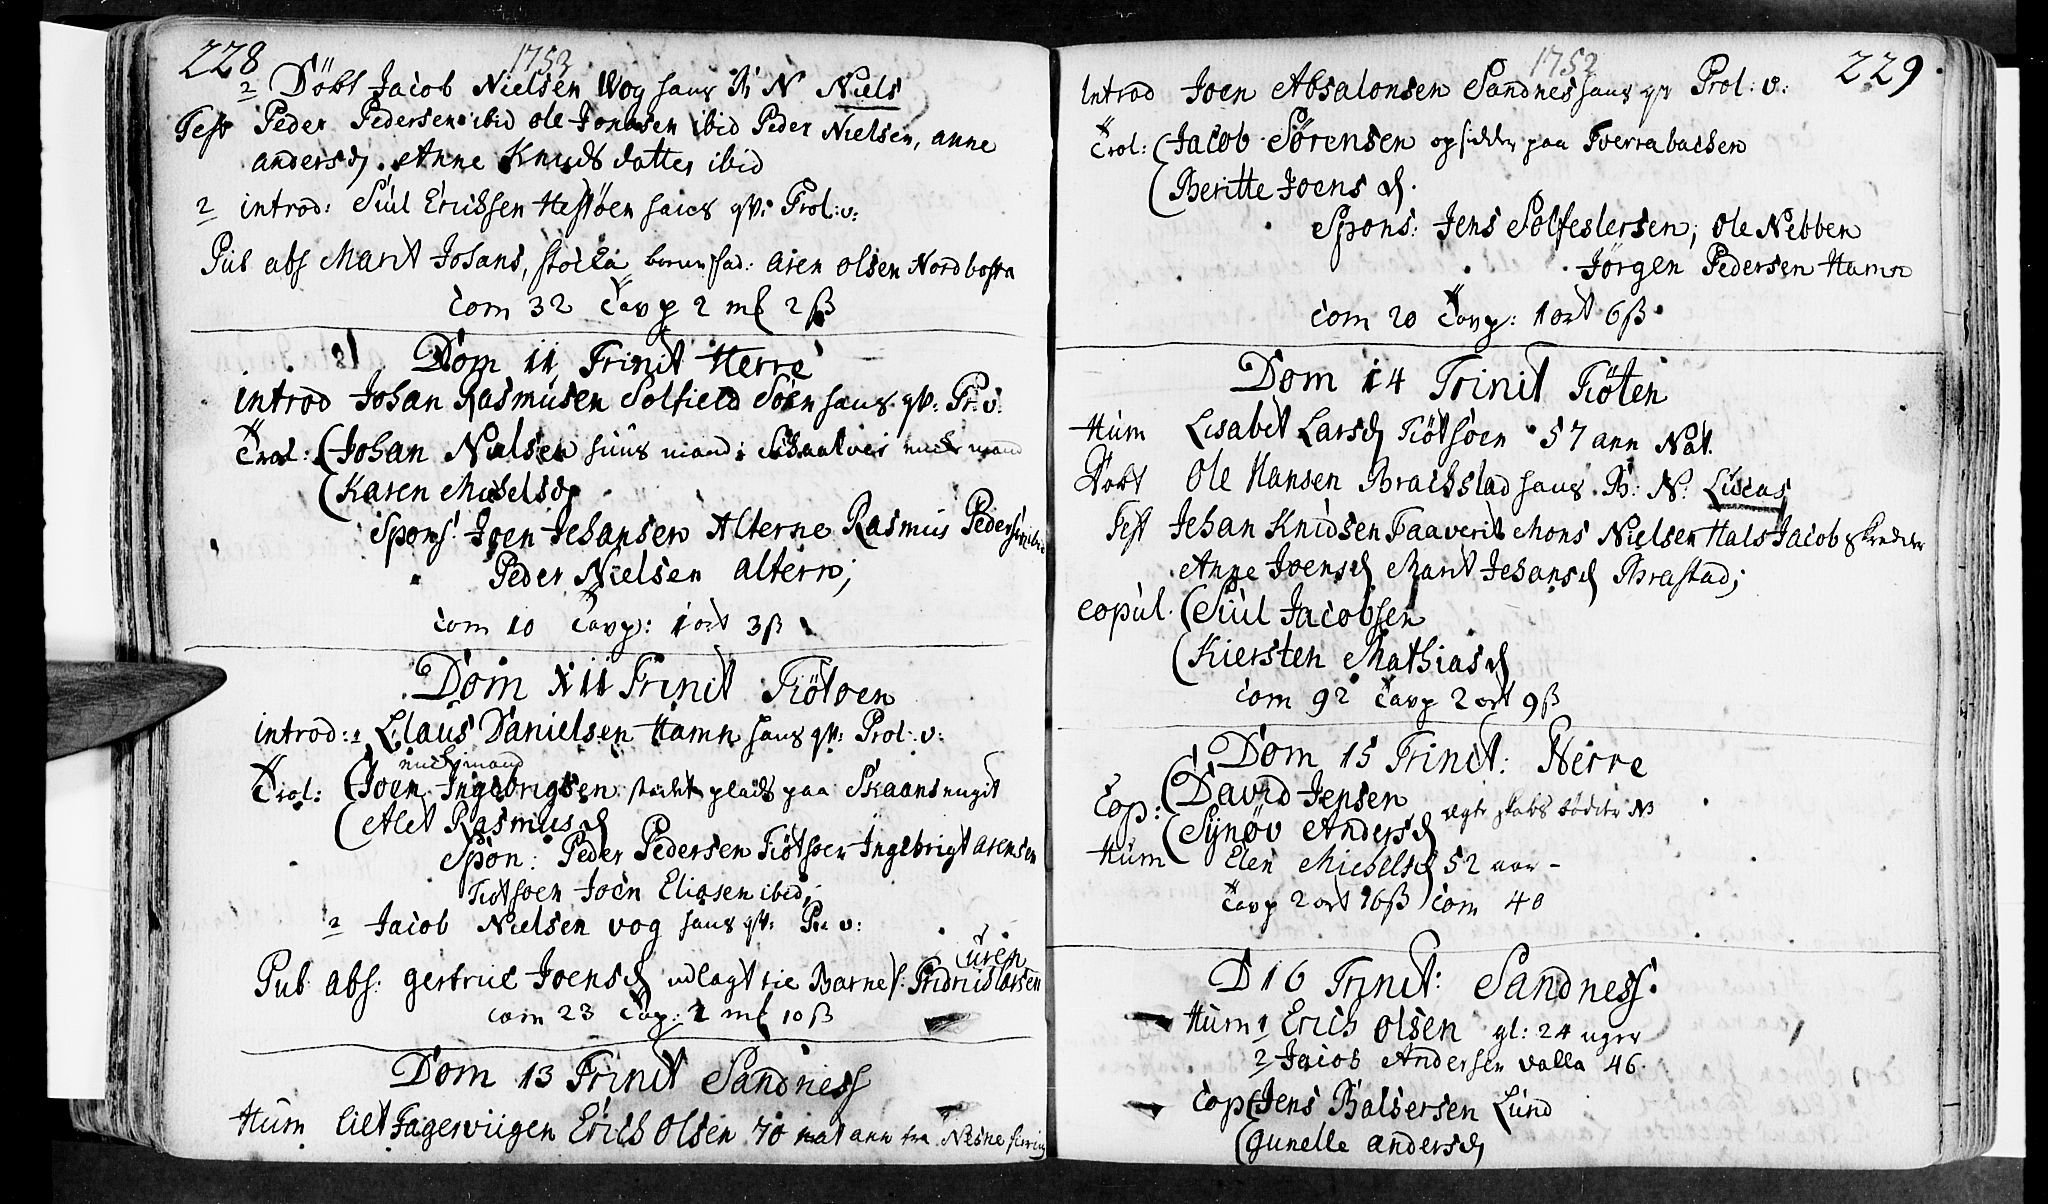 228 1753
2 Döbt Jacob Nielsen Wog hans B: N Niels
Test Peder Pedersen ibid ole Jonasen ibid Peder Nielsen, anne
andersd. Anne Knuds datter ibid
2 introd: Siul Ericksen Hestöen hans qv: Prol: v:
Pub abs Marit Johans, barnefad: aren olsen Nord
Com 32 Tavp 2 mk 2 ß
Dom 11 Trinit Herre
introd Johan Rasmusen Solfield Söen hans qv: Pr: v:
Trol: (Johan Nielsen huus mand: enckemand
(Karen Michelsd
Spons: Joen Johansen Alterne Rasmus Pedersen ibid
Peder Nielsen altern;
Com 10 Tavp: 1 ort 3ß
Dom XII Trinit Tiötoen
introd: 1 Claus Danielsen Hamn hans qv: Prol: v:
enckemand
Trol: (Joen Ingebrigsen plads paa
(Alet Rasmusd
Spon: Peder Pedersen Tiötsoen Ingebrigt arensen
Tiötsoen Joen Eliasen ibid;
2 Jacob Nielsen vog hans qv: Pr: v:
Pub abs: gertrue Joensd udlagt tie Barnef: Fridrich Larsen
Com 23 Tavp: 2 mk 10 ß
Dom 13 Trinit Sandness
Hum Fagerviigen Erich Olsen 70 nat ann fra Nesne
1753 229
Introd Joen Absalonsen Sandnes hans qv Prol: v:
Trol: (Jacob Sörensen opsidder paa Tverrabachen
(Beritte Joens d.
Spons: Jens Solfeslersen; Ole Nebben
Jörgen Pedersen Hamn
Com 20 Tavp: 1 ort 6ß
Dom 14 Trinit Tiöten
Hum Lisabet Larsd Tiötsöen 57 ann Nat.
Döbt Ole Hansen Brachstad hans B: N: Lucas
Test Johan Knudsen Faaverit Mons Nielsen Hals Jacob skredder
Anne Joensd Marit Johansd Brastad;
Copul. (Siul Jacobsen
(Kiersten Mathiasd
Com 92 Tavp 2 ort 9ß
Dom 15 Trinit: Herre
Cop: (David Jensen
(Synöv Andersd
Hum Elen Michelsd 52 aar -
Tavp 2 ort 16ß) Com 40
D 16 Trinit: Sandness.
Hum 1 Erich olsen gl: 24 uger
2 Jacob Andersen valla 46.
Cop (Jens Balsersen Lund
(Gunelle andersd